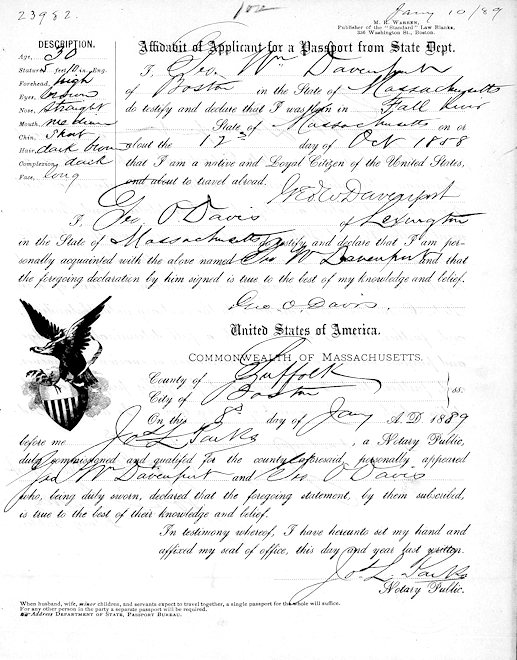 23982
Jany 10/89
M. R. WARREN,
Publisher of the "Standard" Law Blanks,
336 Washington St., Boston.
DESCRIPTION.
Age, 30
Stature, 5 feet 10 in. Eng.
Forehead, high
Eyes, brown
Nose, straight
Mouth, medium
Chin, short
Hair, dark brown
Complexion, dark
Face, long
Affidavit of Applicant for a Passport from State Dept.
I, Geo. Wm Davenport
of Boston in the State of Massachusetts
do testify and declare that I was born in Fall River
State of Massachusetts on or
about the 12th day of Oct 1858
that I am a native and Loyal Citizen of the United States,
and about to travel abroad.
Geo W Davenport
I, Geo. O Davis of Lexington
in the State of Massachusetts do testify and declare that I am per-
sonally acquainted with the above named Geo Wm Davenport and that
the foregoing declaration by him signed is true to the best of my knowledge and belief.
Geo. O. Davis.
United States of America.
COMMONWEALTH OF MASSACHUSETTS.
County of Suffolk
City of Boston
} ss:
On this 8th day of Jany A.D 1889
before me Jos L Parks, a Notary Public,
duly commissioned and qualified for the county aforesaid, personally appeared
Geo Wm Davenport and Geo O Davis
who, being duly sworn, declared that the foregoing statement, by them subscribed,
is true to the best of their knowledge and belief.
In testimony whereof, I have hereunto set my hand and
affixed my seal of office, this day and year last written.
Jos. L. Parks
Notary Public.
When husband, wife, minor children, and servants expect to travel together, a single passport for the whole will suffice.
For any other person in the party a separate passport will be required.
Address DEPARTMENT OF STATE, PASSPORT BUREAU.